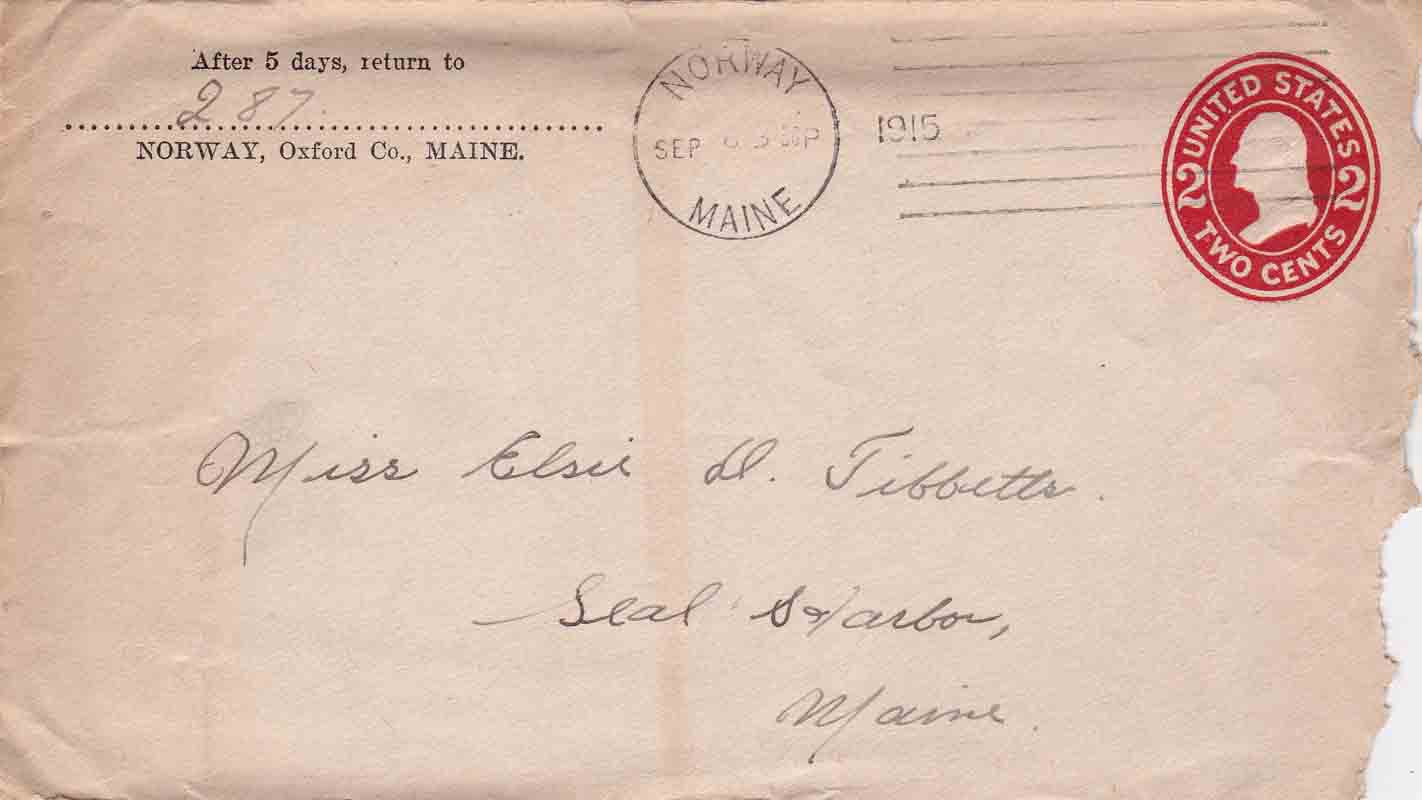 After 5 days, return to
287
NORWAY, Oxford Co., MAINE.
NORWAY
SEP
MAINE
1915
UNITED STATES
2 2
TWO CENTS
Miss Elsie D. Tibbetts.
Seal Harbor,
Maine.